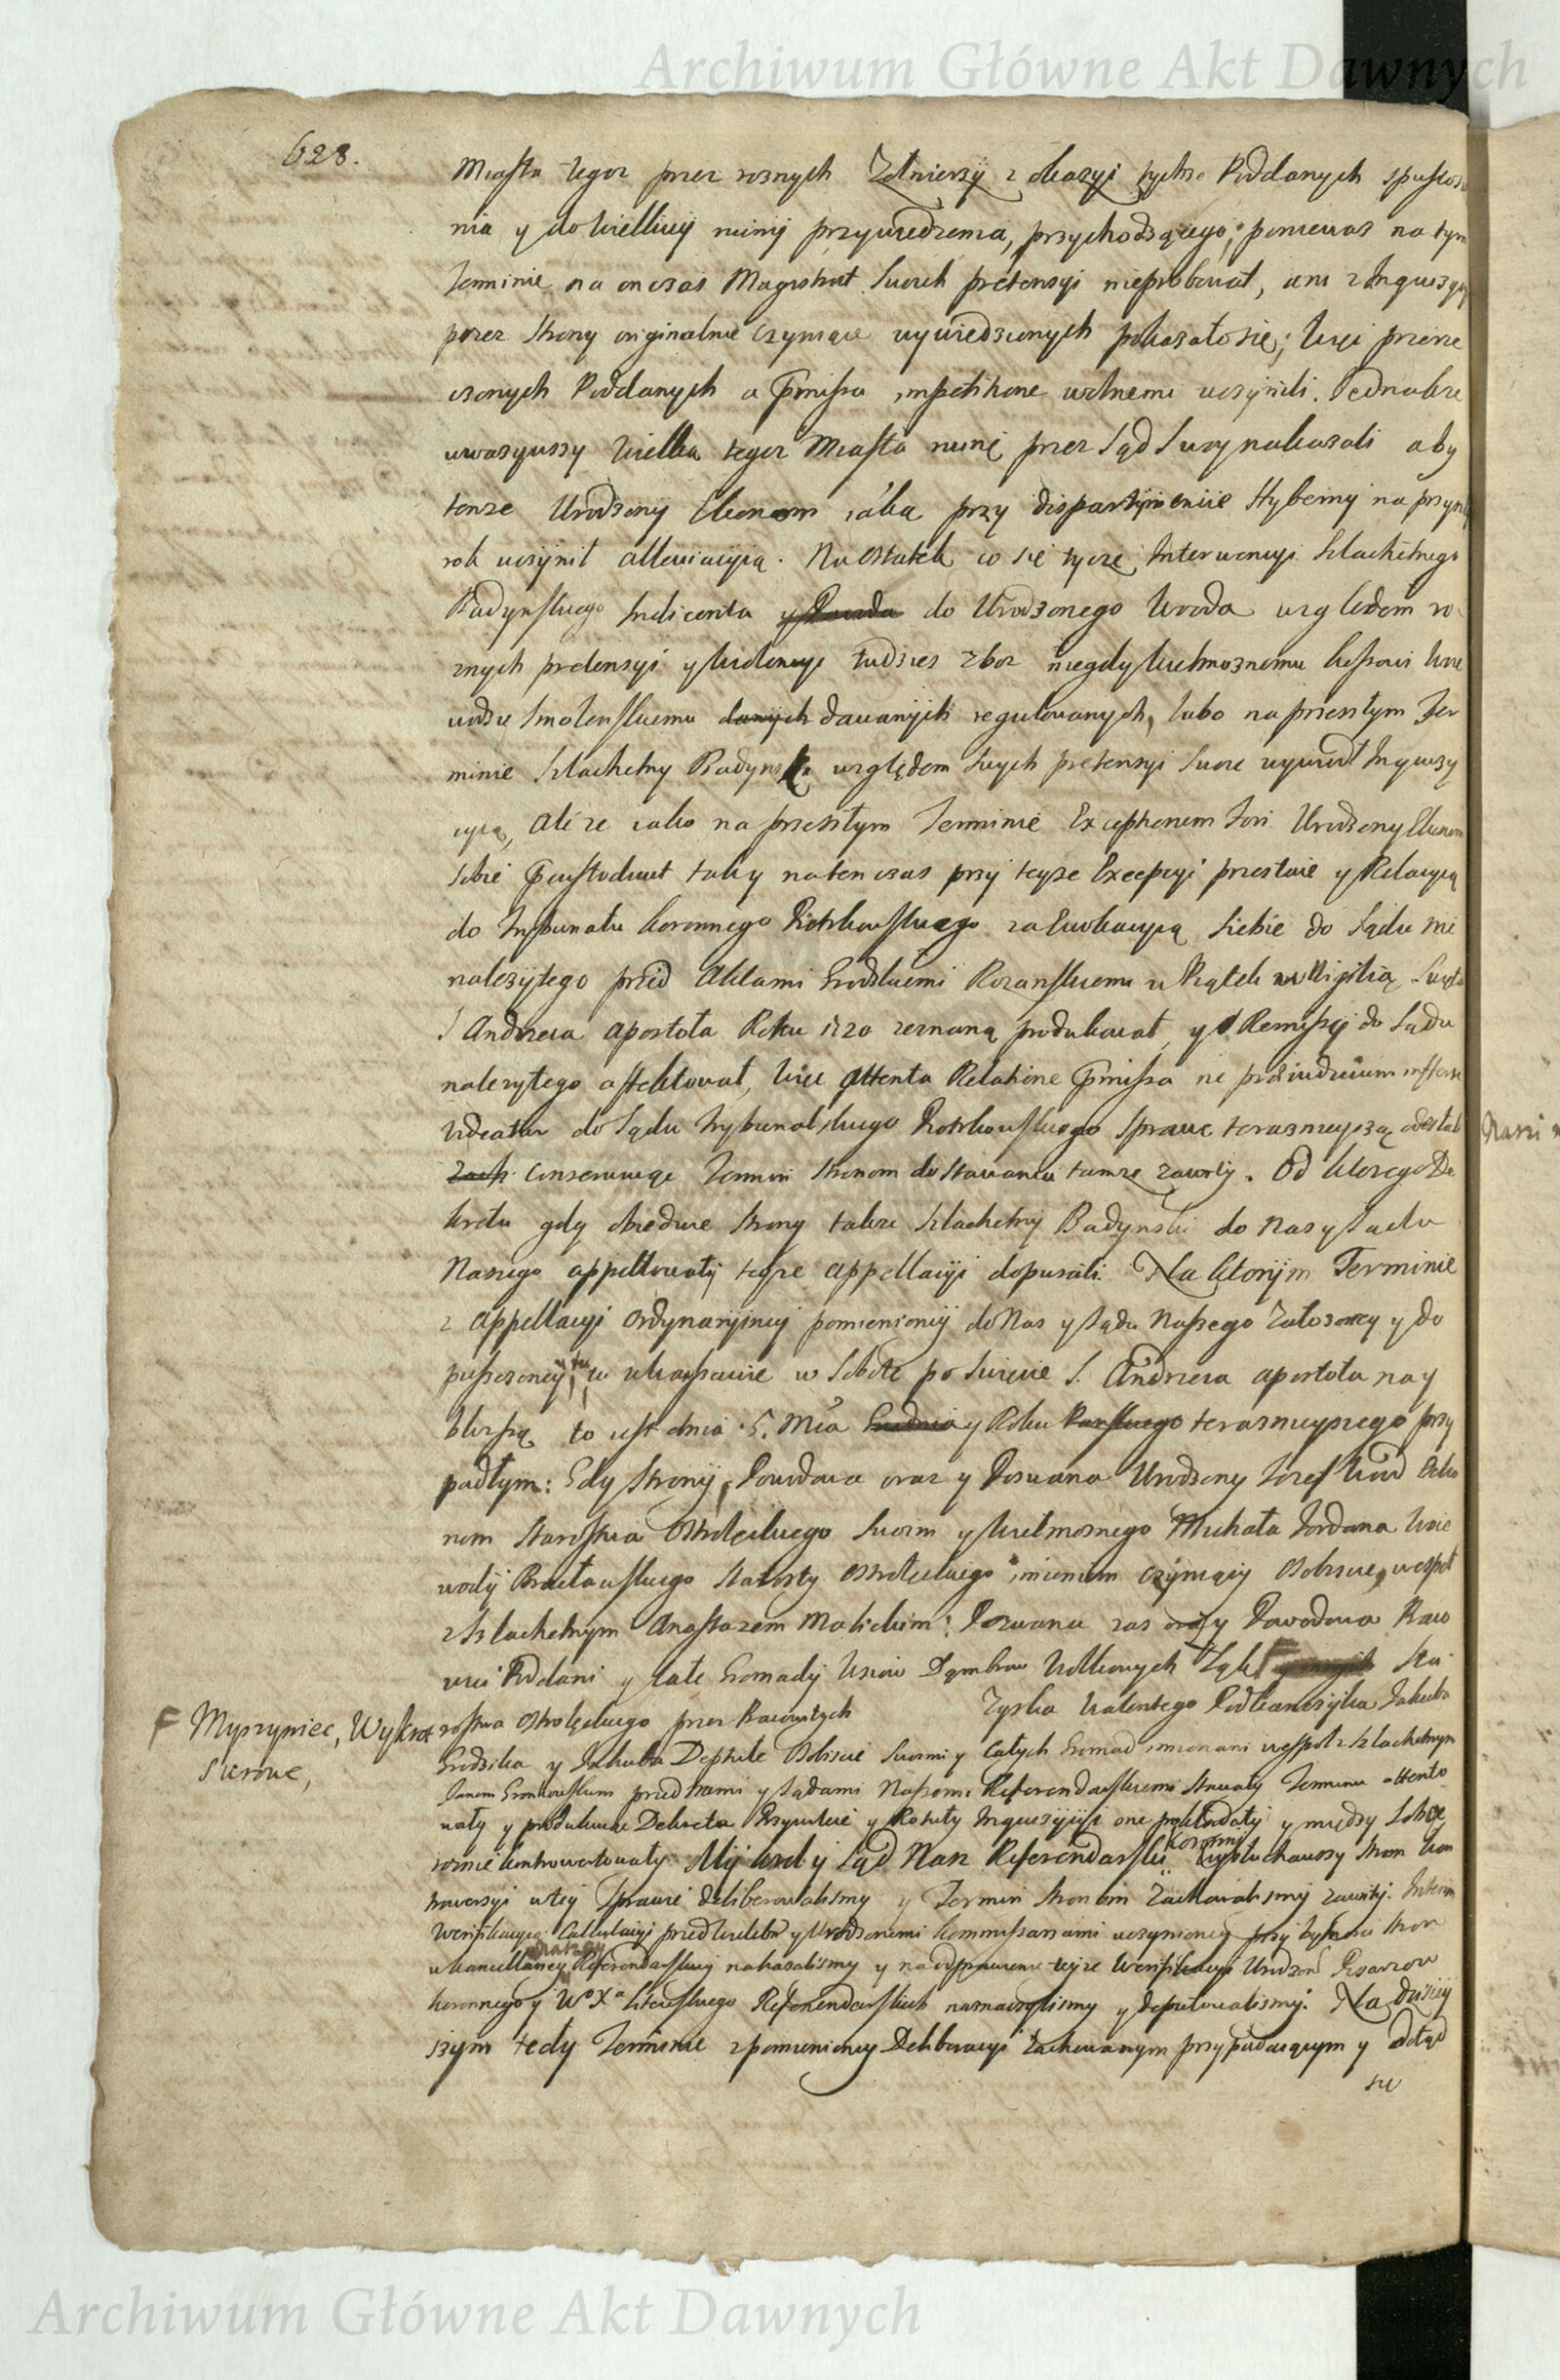 Archiwum Główne Akt Dawnych
628.
Miasta tegoz przez roznych Zołnierzy z okazyi tychze Poddanych spustosze
nia y do wielkiey ruiny przywiedzenia, przychodzącego; poniewaz na tym
Terminie na on czas Magistrat Swoich pretensyi nieprobował, ani z Inquizycyi
przez Strony originalnie czyniące wywiedzionych pokazało się; więc przerze
czonych Poddanych a Pmissa impetitione wolnemi uczynili. Jednakze
uwazywszy wielką tegoz Miasta ruinę przez Sąd Swoy nakazali aby
tenze Urodzony Ekonom iaką przy dispartymencie Hyberny na przyszły
rok uczynił allewiacyią. Na ostatek co się tycze Interwencyi Szlachetnego
Badynskiego Indicenta do Urodzonego Woyda względem ro
znych pretensyi y tudziesz zboz niegdy Wielmoznemu Woie
wodzie Smolenskiemu danych dawanych regulowanych, lubo na przeszłym Ter
minie Szlachetny Badynski względem Swych pretensyi Swoie wywiodł Inquizy
cyią, ale ze iako na przeszłym Terminie Exceptionem Fori Urodzony Ekonom
Sobie Pcustodivit tak y na ten czas przy teyze Excepcyi przestaie y Relacyią
do Trybunału Koronnego Piotrkowskiego za Ewokacyią Siebie do Sądu nie
nalezytego przed Aktami Grodzkiemi Rozanskiemi w Piątek w Wigilią Swięta
S Andrzeia Apostoła Roku 1720 zeznaną produkował, y o Remissę do Sądu
nalezytego affektował, więc attenta Relatione Pmissa ne praeiudicium inferre
videatur do Sądu Trybunalskiego Piotrkowskiego Sprawę terazmieyszą odesłali
conserwuiąc Termin Stronom do Stawania tamze zawity. Od ktorego De
kretu gdy obiedwie Strony takze Szlachetny Badynski do Nas y Sądu
Naszego appellowały teyze appellacyi dopuscili. Na ktorym Terminie
z appellacyi Ordynaryiney pomienioney do Nas y Sądu Naszego Załozoney y do
puszczoney, tu w Warszawie w Sobotę po Swięcie S. Andrzeia Apostoła nay
blizszą to iest dnia 5. Mca Grudnia y Roku Panskiego terazmieyszego przy
padłym: Gdy Strony, Powodowa oraz y Pozwana Urodzony Jozef Woyd Eko
nom Starostwa Ostrołęckiego Swoim y Wielmoznego Michała Jordana Woie
wody Bracławskiego Starosty Ostrołęckiego imieniem czyniący Osobiscie, wespoł
z Szlachetnym Anastazem Malickim; Pozwana zas oraz y Powodowa Praco
wici Poddani y całe Gromady Wsiow Dąmbrow Wolkowych Łąk F Sta
F Myszyniec, Wykrot
Sierowe,
rostwa Ostrołęckiego przez Pracowitych Zyska Walentego Podbiańczyka Jakuba
Grodzika y Jakuba Deptułę Osobiscie Swoimi y Całych Gromad imionami wespoł z Szlachetnym
Janem Gronkowskim przed Nami y Sądami Naszemi Referendarskiemi Stawały Terminu attento
wały y produkuiąc Dekreta Przywileie y Rotuły Inquizycyi one przekładały y między Sobą
roznie kontrowertowały. My wed y Sąd Nasz Referendarski Koronny Wysłuchawszy Stron kon
trowersyi w tey Sprawie deliberowalismy y Termin Stronom Zachowalismy zawity. Interim
Weryfikacyią Calkulacyi przed Wielebn y Urodzonemi Kommissarzami uczynioney przy bytnosci Stron
w Kancellaryey Naszey Referendarskiey nakazalismy y na odprawienie teyze Weryfikacyi Urodzon Pisarzow
Koronnego y W° X° Litewskiego Referendarskich naznaczylismy y deputowalismy. Na dzisiey
szym tedy Terminie z pomienioney Deliberacyi Zachowanym przypadaiącym y dotąd
sie
Archiwum Główne Akt Dawnych